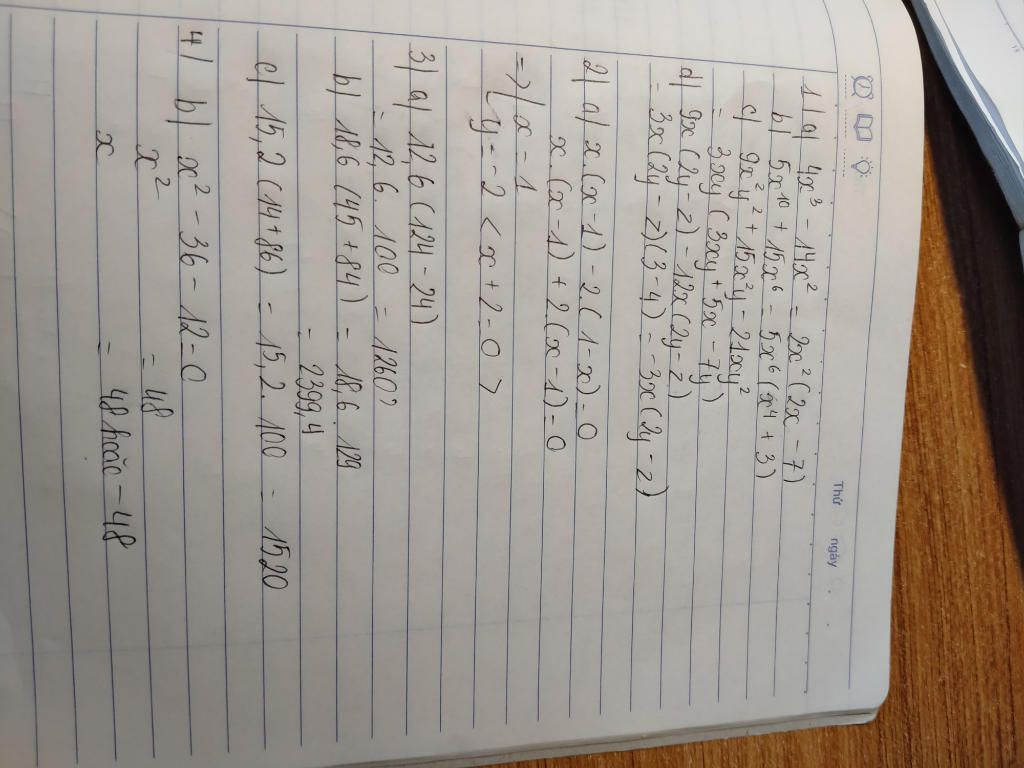 Thứ ngày
1) a) 4x³ - 14x² = 2x²(2x - 7)
b) 5x¹⁰ + 15x⁶ = 5x⁶(x⁴ + 3)
c) 9x²y² + 15x²y - 21xy²
= 3xy(3xy + 5x - 7y)
d) 9x(2y - z) - 12x(2y - z)
= 3x(2y - z)(3 - 4) = -3x(2y - z)
2) a) x(x - 1) - 2(1 - x) = 0
x(x - 1) + 2(x - 1) = 0
=> { x = 1
{ y = -2 < x + 2 = 0 >
3) a) 12,6(124 - 24)
= 12,6 . 100 = 1260
b) 18,6(45 + 84) = 18,6 . 129
= 2399,4
c) 15,2(14 + 86) = 15,2 . 100 = 1520
4) b) x² - 36 - 12 = 0
x² = 48
x = 48 hoặc - 48